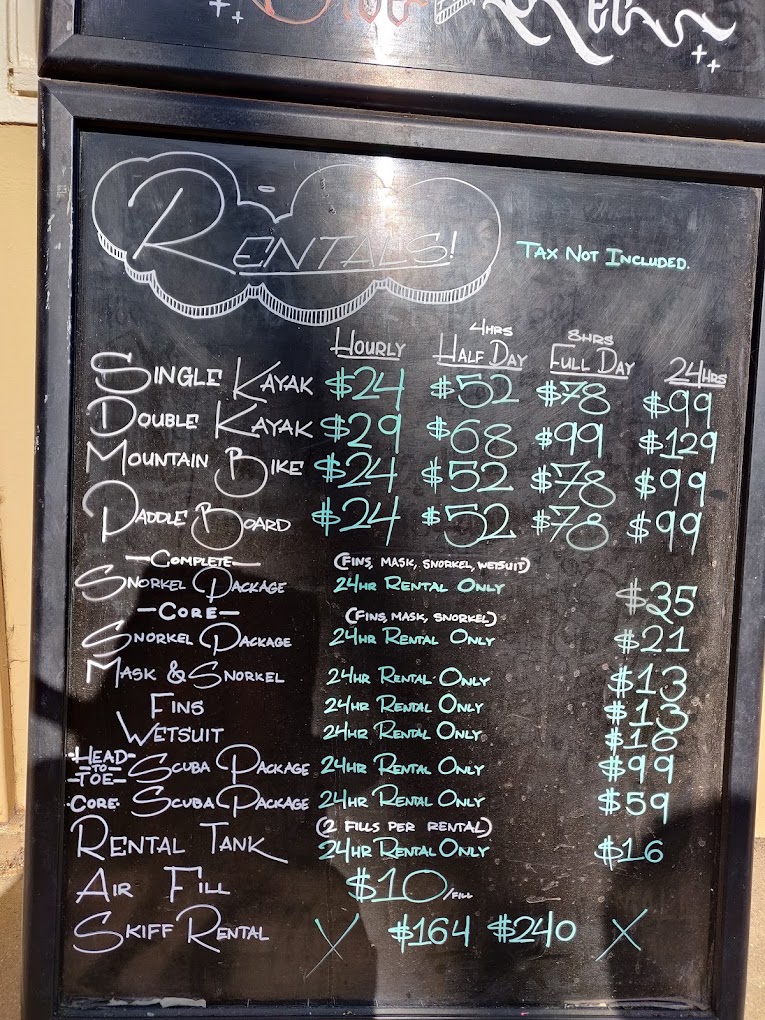 RENTALS!
TAX NOT INCLUDED.
4HRS 8HRS
HOURLY HALF DAY FULL DAY 24HRS
SINGLE KAYAK $24 $52 $78 $99
DOUBLE KAYAK $29 $68 $99 $129
MOUNTAIN BIKE $24 $52 $78 $99
PADDLE BOARD $24 $52 $78 $99
-COMPLETE- (FINS, MASK, SNORKEL, WETSUIT)
SNORKEL PACKAGE 24HR RENTAL ONLY $35
-CORE- (FINS, MASK, SNORKEL)
SNORKEL PACKAGE 24HR RENTAL ONLY $21
MASK & SNORKEL 24HR RENTAL ONLY $13
FINS 24HR RENTAL ONLY $13
WETSUIT 24HR RENTAL ONLY $16
-HEAD-TO-TOE- SCUBA PACKAGE 24HR RENTAL ONLY $99
·CORE· SCUBA PACKAGE 24HR RENTAL ONLY $59
(2 FILLS PER RENTAL)
RENTAL TANK 24HR RENTAL ONLY $16
AIR FILL $10/FILL
SKIFF RENTAL X $164 $240 X